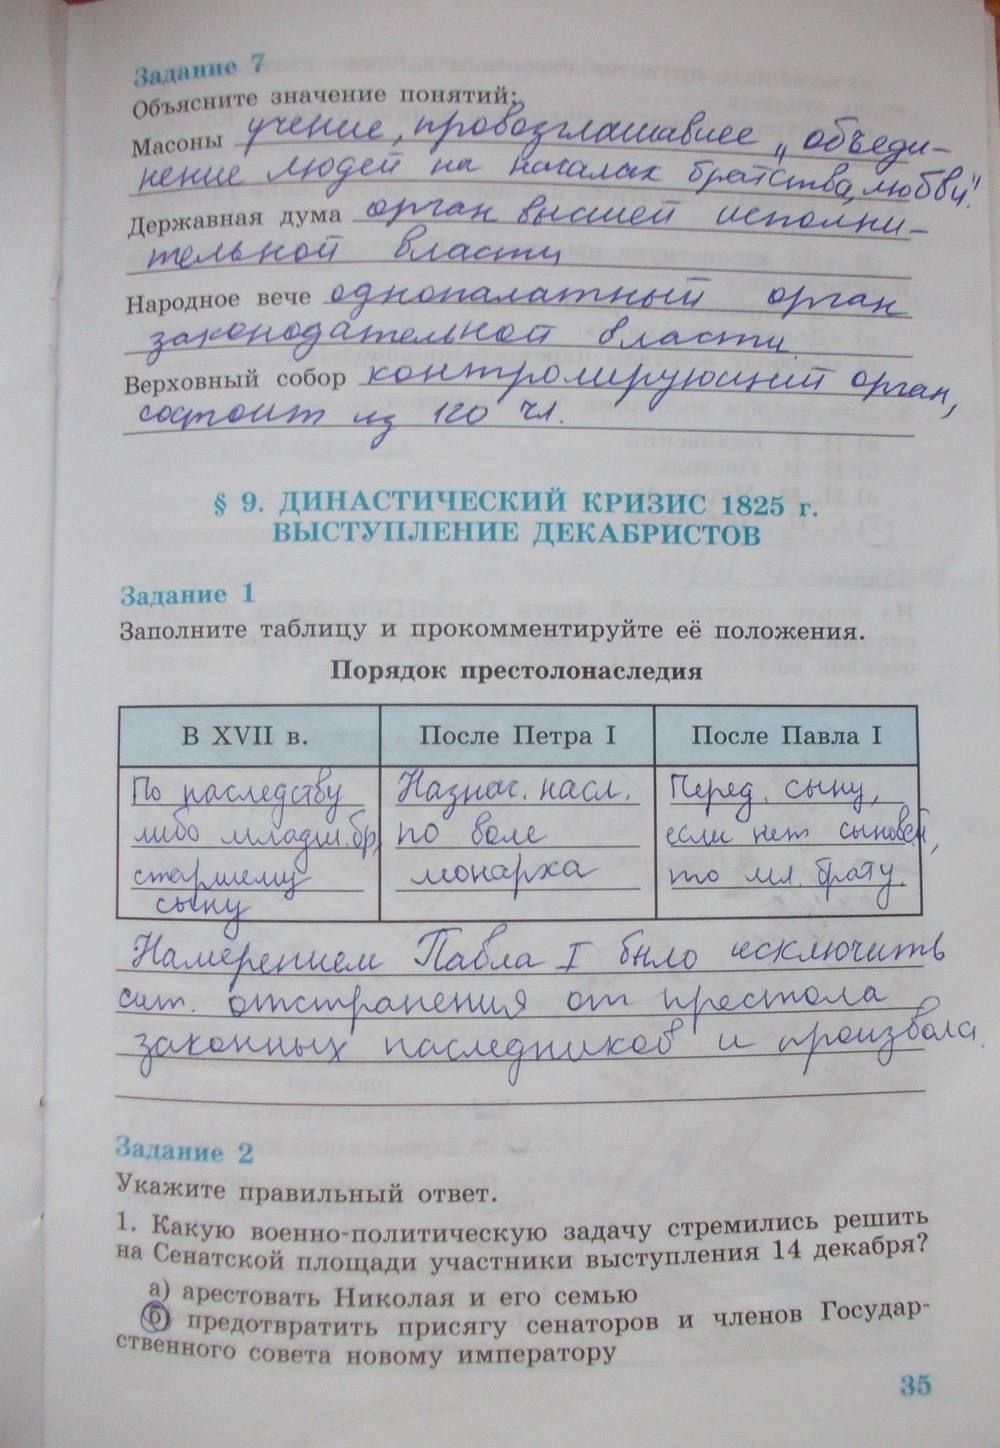 Задание 7
Объясните значение понятий:
Масоны учение, провозглашавшее „объеди-
нение людей на началах братства, любви".
Державная дума орган высшей исполни-
тельной власти
Народное вече однопалатный орган
законодательной власти.
Верховный собор контролирующий орган,
состоит из 120 чл.
§ 9. ДИНАСТИЧЕСКИЙ КРИЗИС 1825 г.
ВЫСТУПЛЕНИЕ ДЕКАБРИСТОВ
Задание 1
Заполните таблицу и прокомментируйте её положения.
Порядок престолонаследия
В XVII в. После Петра I После Павла I
По наследству Назнач. насл. Перед. сыну,
либо младш. бр, по воле если нет сыновей,
старшему монарха то мл. брату.
сыну
Намерением Павла I было исключить
сит. отстранения от престола
законных наследников и произвола.
Задание 2
Укажите правильный ответ.
1. Какую военно-политическую задачу стремились решить
на Сенатской площади участники выступления 14 декабря?
а) арестовать Николая и его семью
б) предотвратить присягу сенаторов и членов Государ-
ственного совета новому императору
35